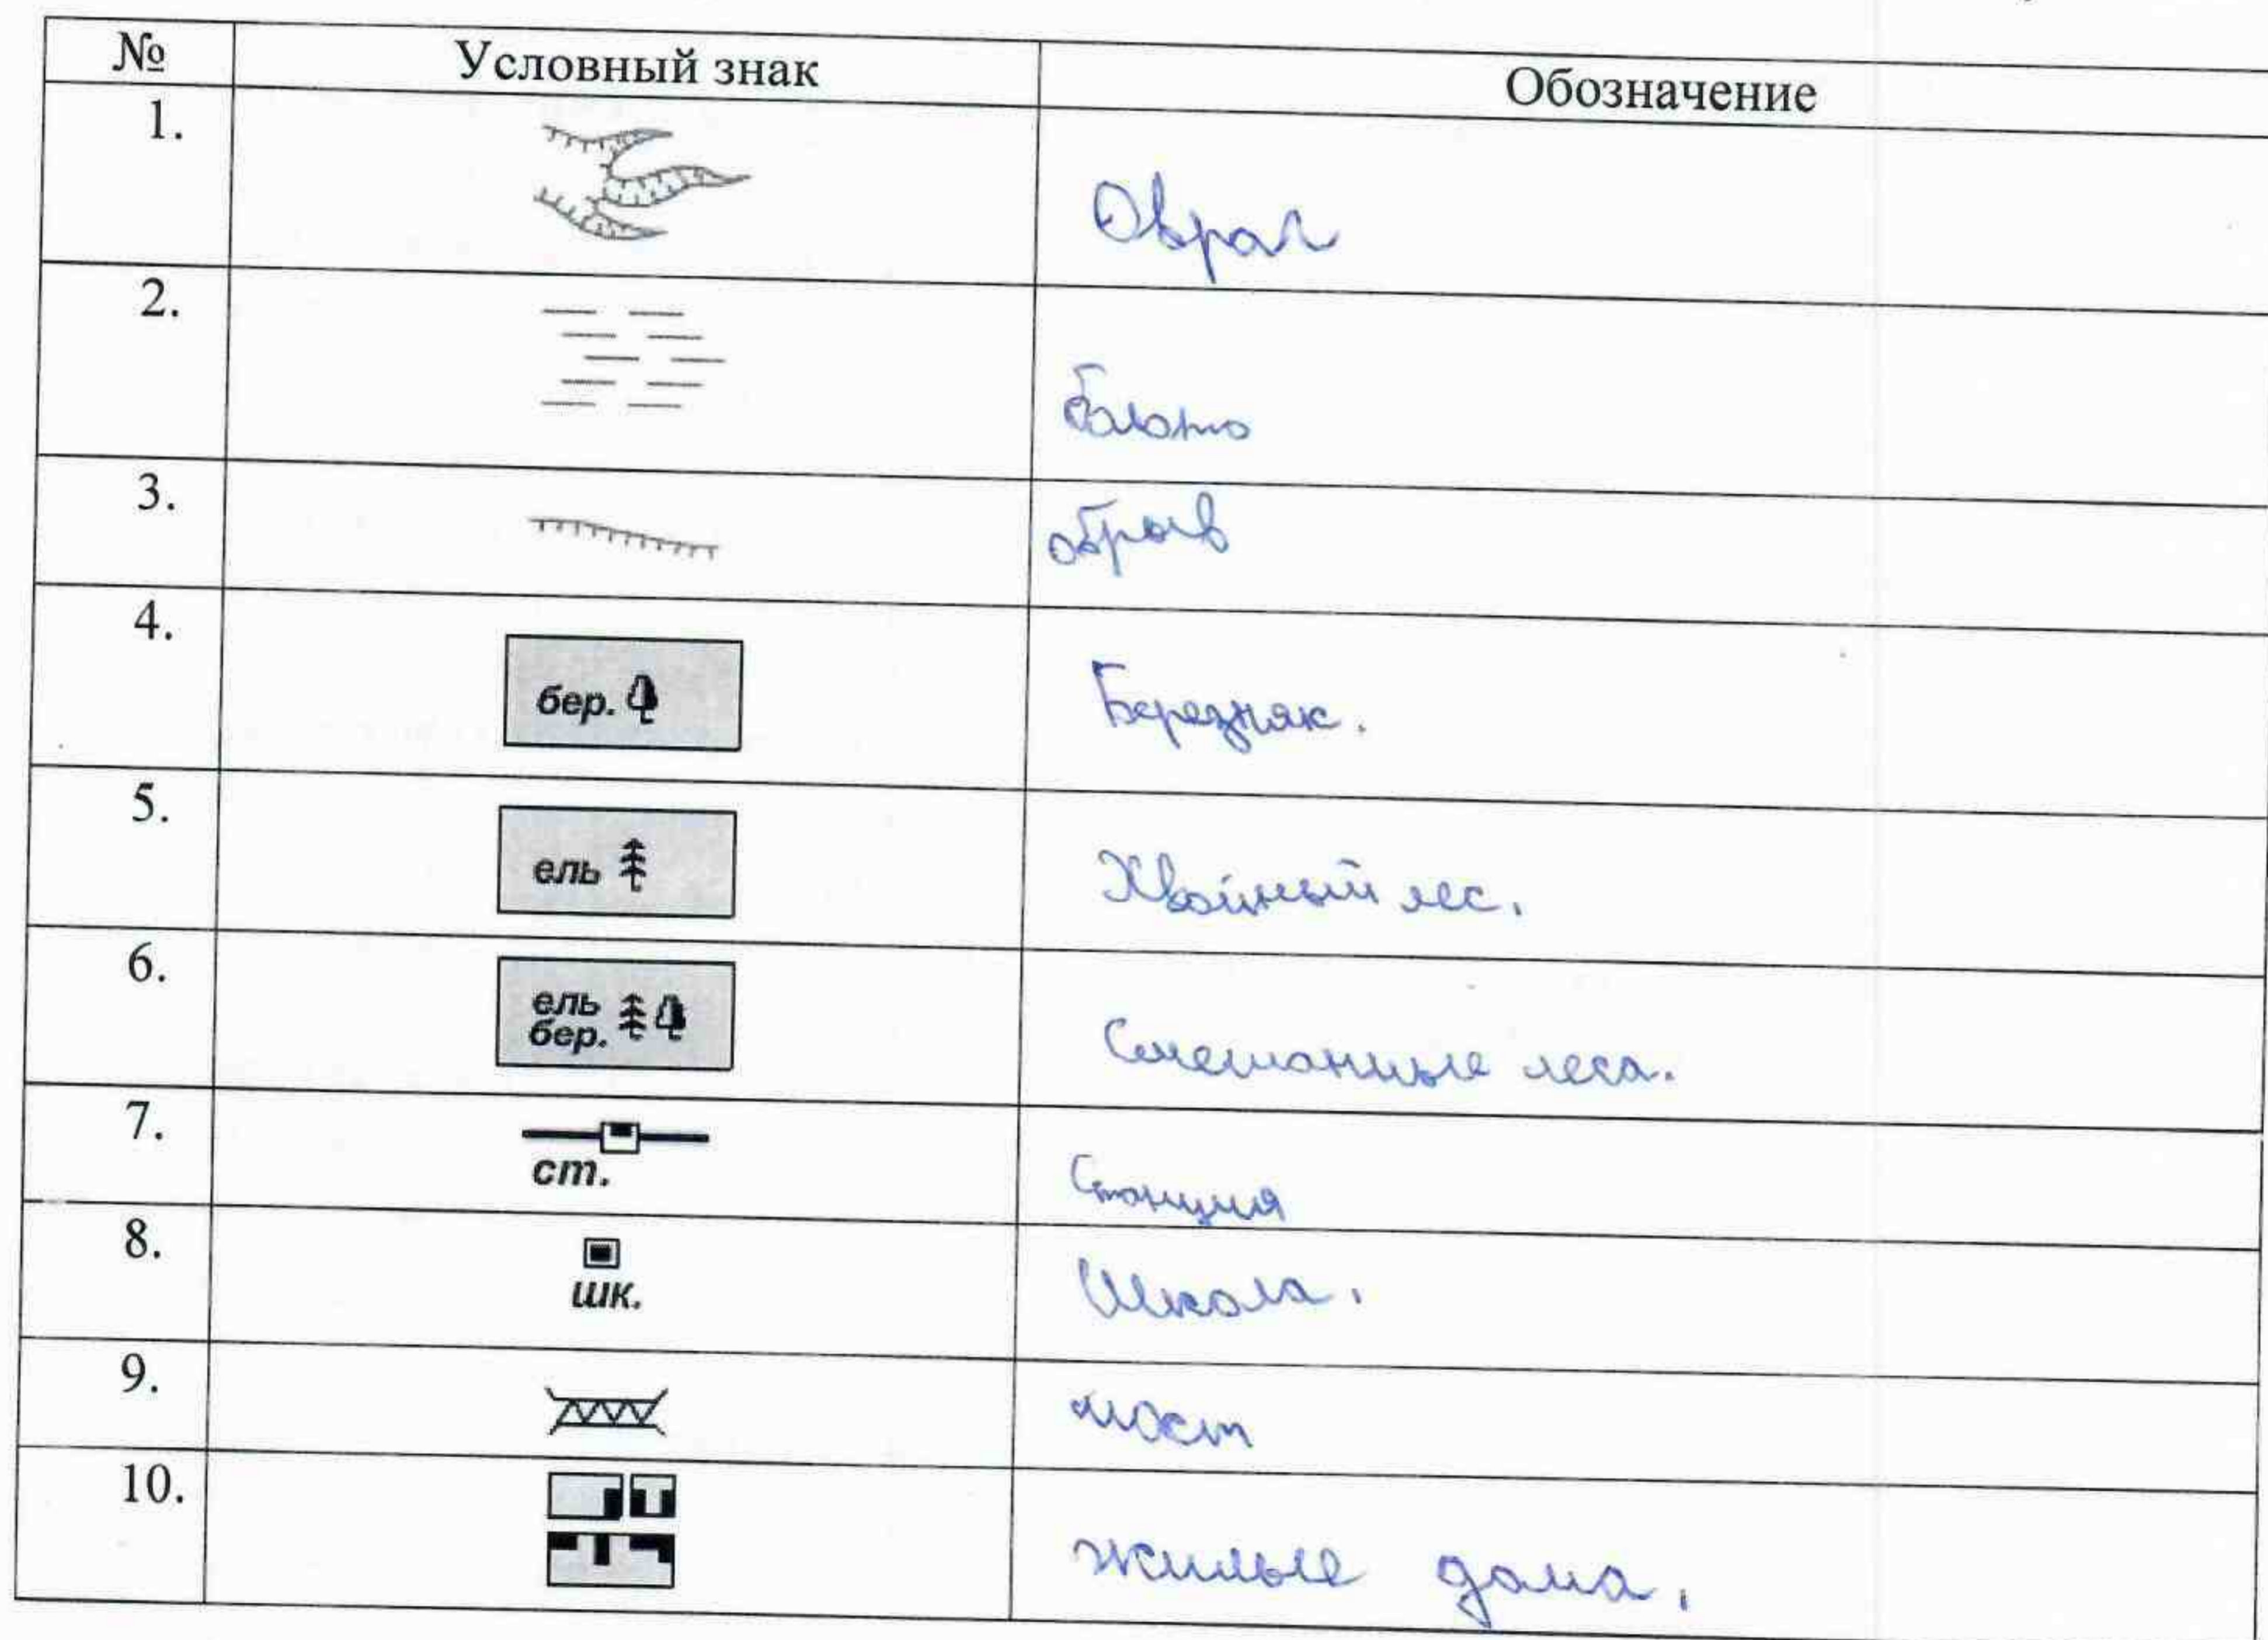 № Условный знак Обозначение
1. Овраг
2. болото
3. обрыв
4. бер. Березняк.
5. ель Хвойный лес.
6. ель
бер. Смешанные леса.
7. ст. Станция
8. шк. Школа.
9. мост
10. жилые дома.